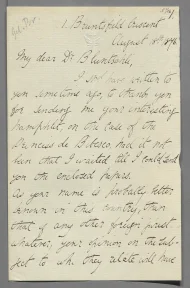 1 Bruntsfield Crescent
August 18th 1876
My dear Dr Bluntschli,
I should have written to
you some time ago to thank you
for sending me your interesting
pamphlet, on the case of the
Princess de Bibesco had it not
been that I waited till I could send
you the enclosed papers.
As your name is probably better
known in this country, than
that of any other foreign jurist
whatever, your opinion on the sub-
ject to wh. they relate will have